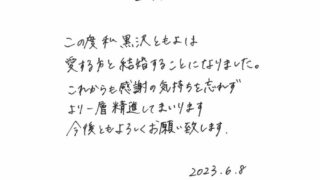 この度私黒沢ともよは
愛する方と結婚することになりました。
これからも感謝の気持ちを忘れず
より一層精進してまいります
今後ともよろしくお願い致します.
2023.6.8